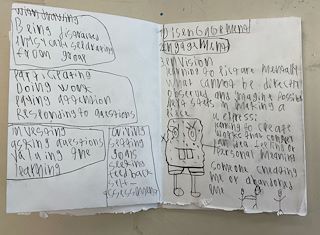 withdrawing
Being disgraced
physically seperating
from group
Participating
Doing work
paying attention
Responding to questions
investing
asking questions
Valuing the
learning
Driving
setting
goals
seeking
feedback
self-
assessment
Disengagement
engagement
3. envision
learning to picture mentally
what cannot be directly
observed and imagine possible
next steps in making a
piece.
u express:
learning to create
works that convey
an idea feeling or
personal meaning
someone cheating
me or abandoned
me